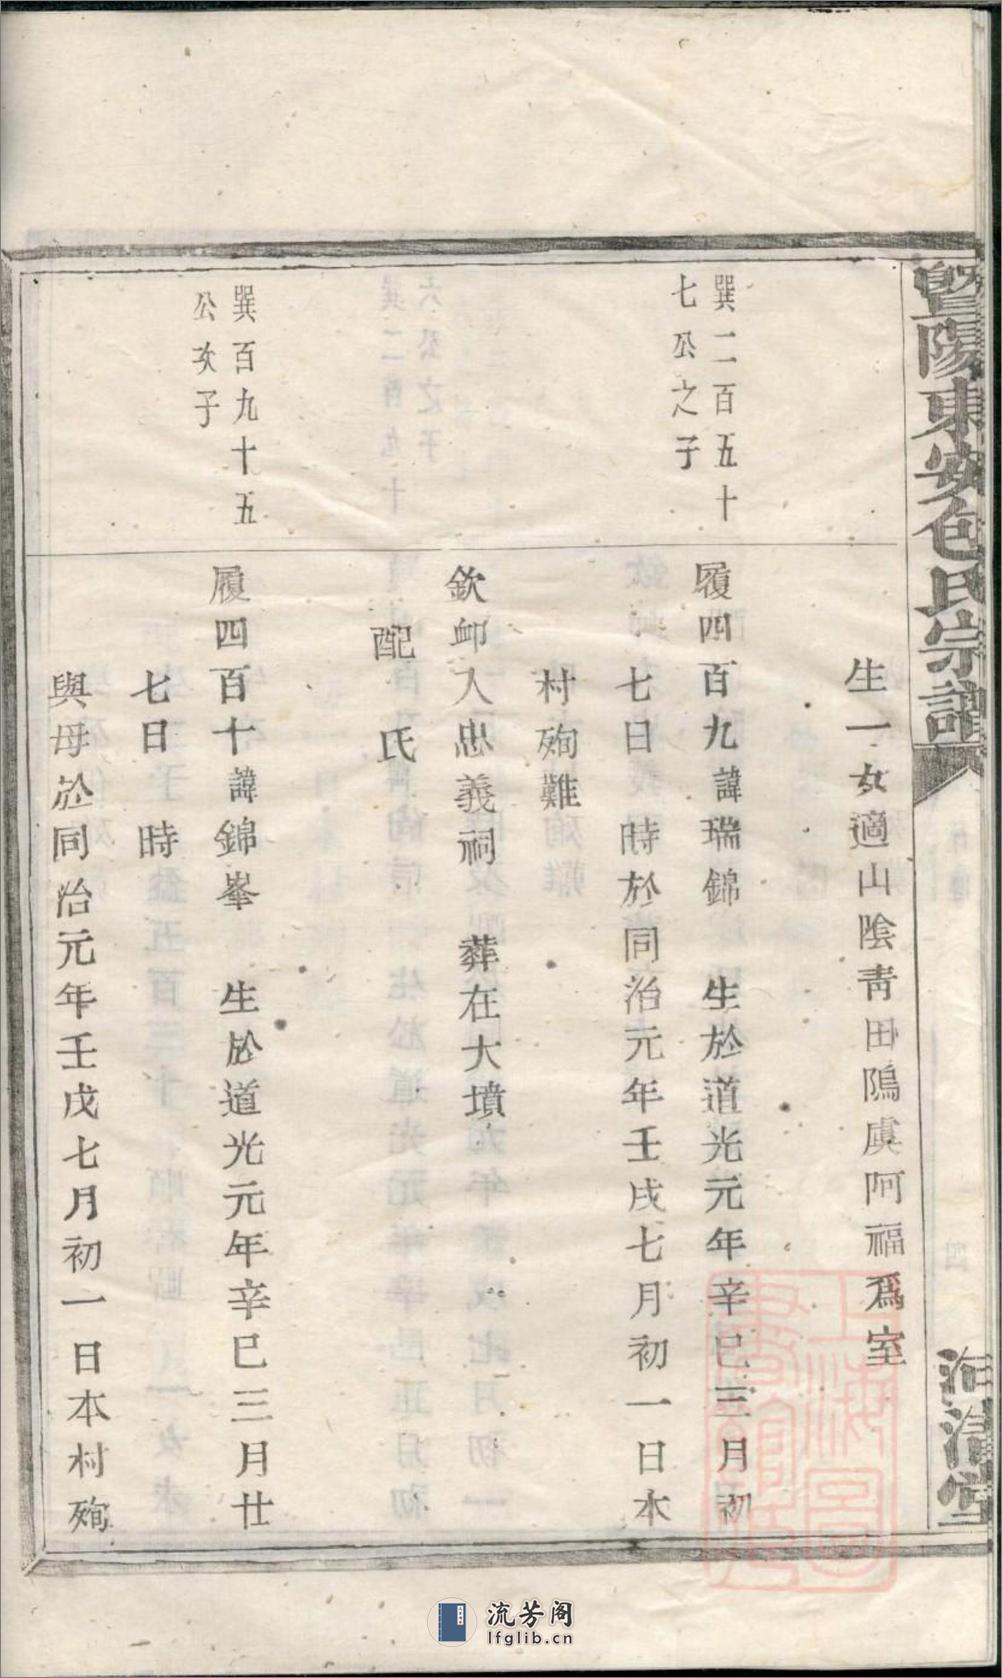 暨陽東安包氏宗譜
清堂
生一女適山陰青田隝虞阿福爲室
巽二百五十
七公之子
履四百九諱瑞錦 生於道光元年辛巳三月初
七日 時於同治元年壬戌七月初一日本
村殉難
欽卹入忠義祠 葬在大墳
配 氏
巽百九十五
公次子
履四百十諱錦峯 生於道光元年辛巳三月廿
七日 時
與母於同治元年壬戌七月初一日本村殉
上海圖書館藏
流芳阁
lfglib.cn